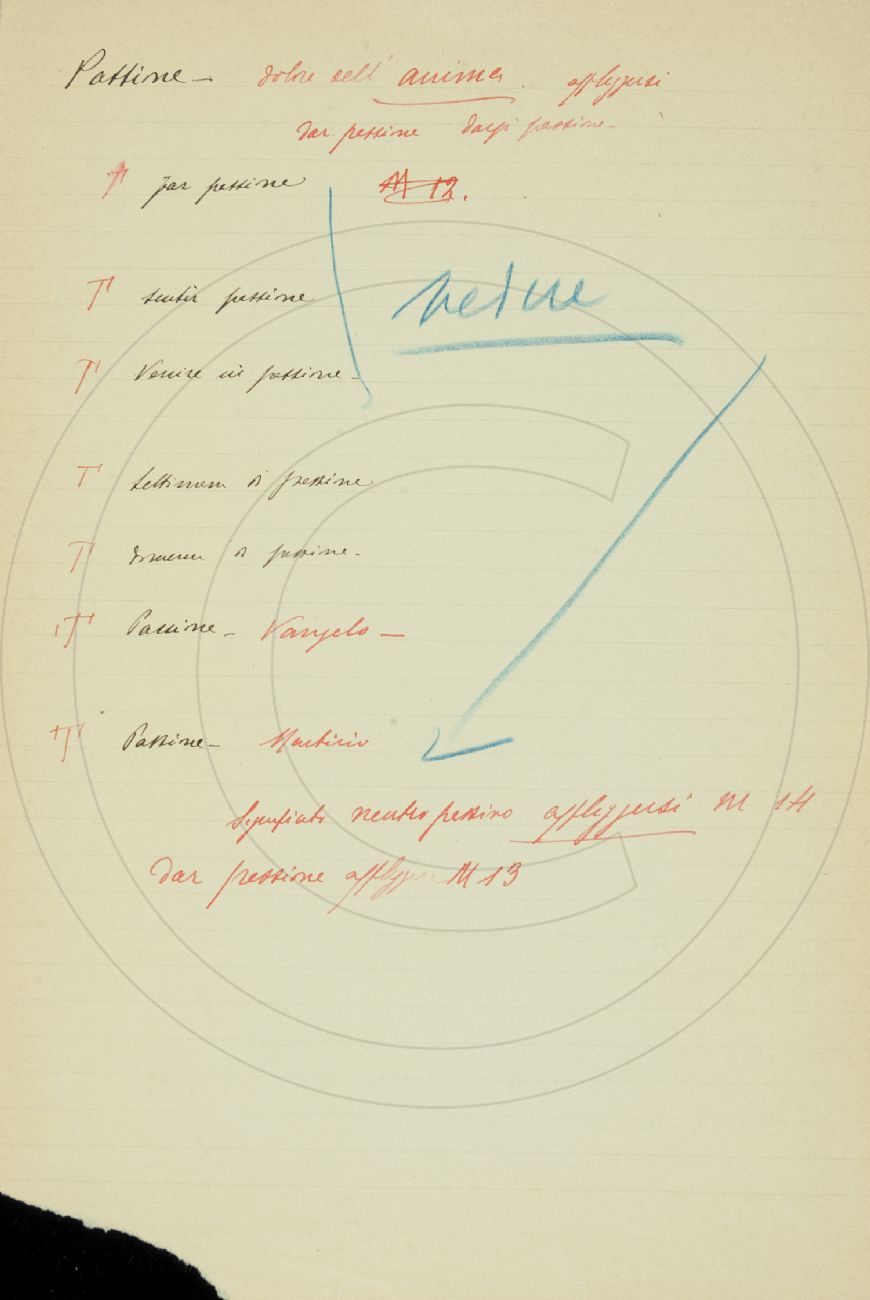 Passione — dolore dell' anima. affliggersi
dar passione darsi passione -
T far passione M 12.
T sentir passione
vedere
T Venire in passione -
T settimana di passione
T domenica di passione -
T Passione - Vangelo —
T Passione - Martirio
Significato neutro passivo affliggersi M 14
Dar passione affliggere M 13